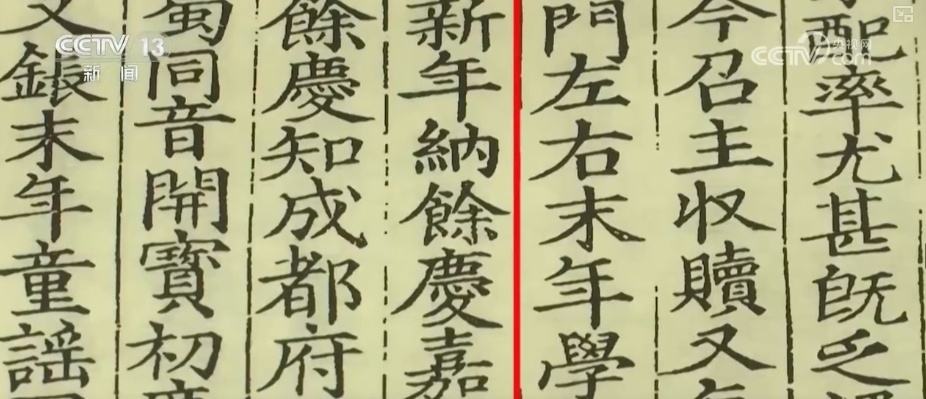 配率尤甚旣乏
今召主收贖又
門左右末年學
新年納餘慶嘉
餘慶知成都府
蜀同音開寶初
文銀末年童謡
CCTV 13
新闻
CCTV 央视网
.com